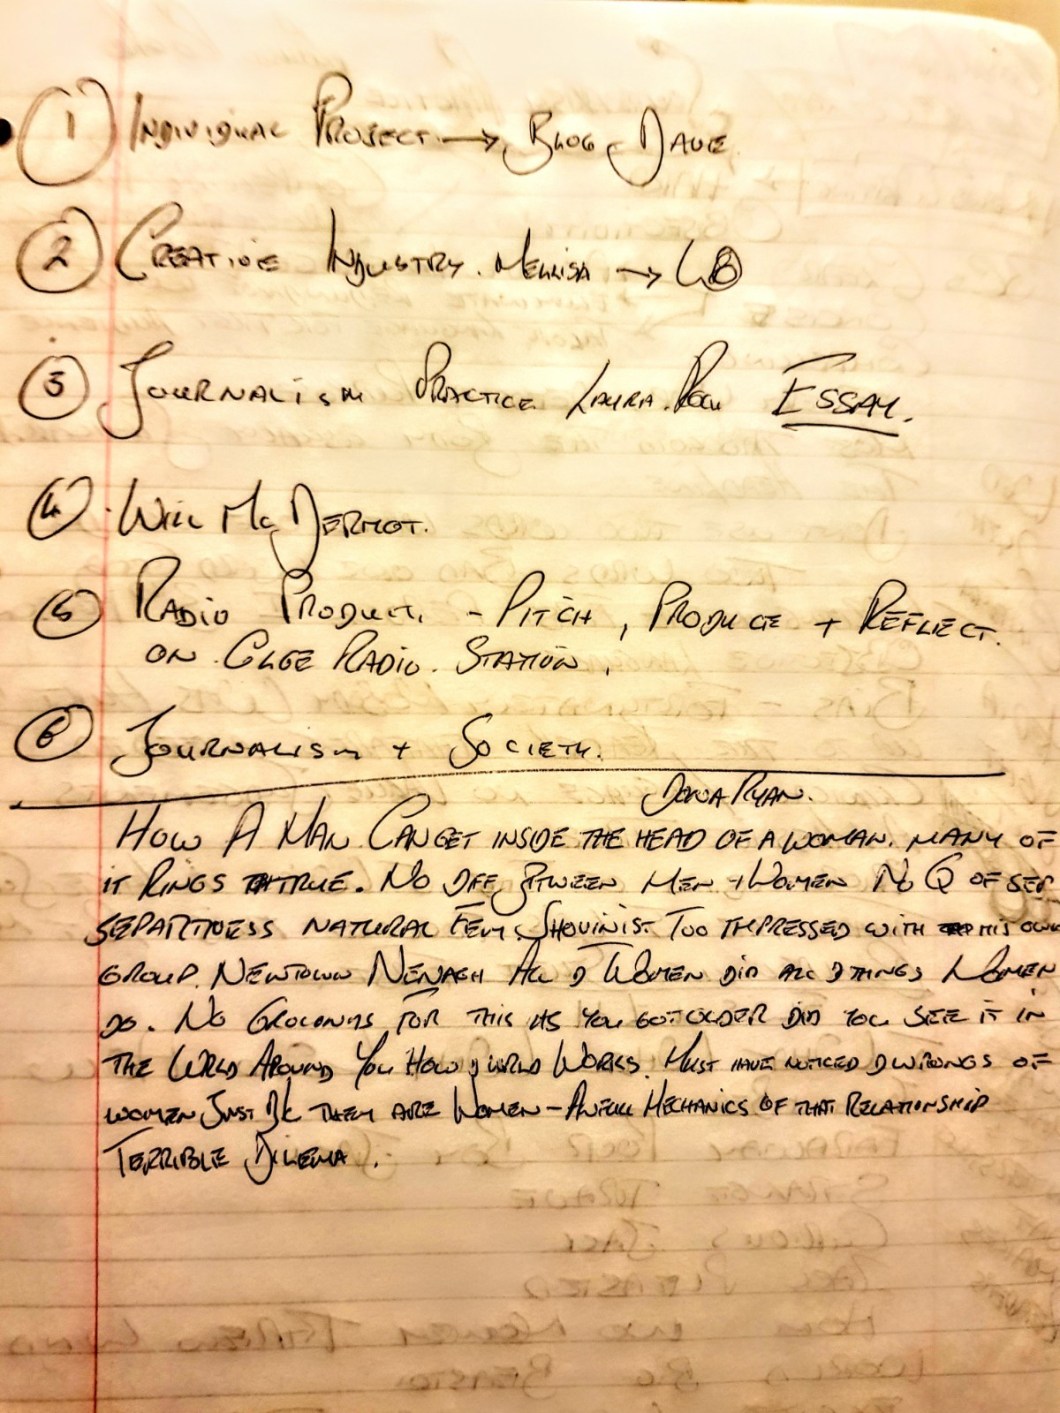 1 INDIVIDUAL PROJECT → BLOG DAVE
2 CREATIVE INDUSTRY. MELLISA →
3 JOURNALISM PRACTICE LAURA. ESSAY.
4 WILL McDERMOT.
5 RADIO PRODUCT. - PITCH, PRODUCE + REFLECT.
ON COLLEGE RADIO. STATION.
6 JOURNALISM + SOCIETY.
RYAN.
HOW A MAN CAN GET INSIDE THE HEAD OF A WOMAN. MANY OF
IT RINGS TRUE. NO DIFF BTWEEN MEN + WOMEN NO Q OF
NATURAL FEM. SHOUINIST. TOO IMPRESSED WITH HIS OWN
GROUP. NEWTOWN NENAGH ALL D WOMEN DID ALL D THINGS WOMEN
DO. NO GROUNDS FOR THIS AS YOU GOT OLDER DID YOU SEE IT IN
THE WORLD AROUND YOU HOW D WORLD WORKS. MUST HAVE NOTICED D WRONGS OF
WOMEN JUST BC THEY ARE WOMEN - AWFULL MECHANICS OF THAT RELATIONSHIP
TERRIBLE DILEMA.